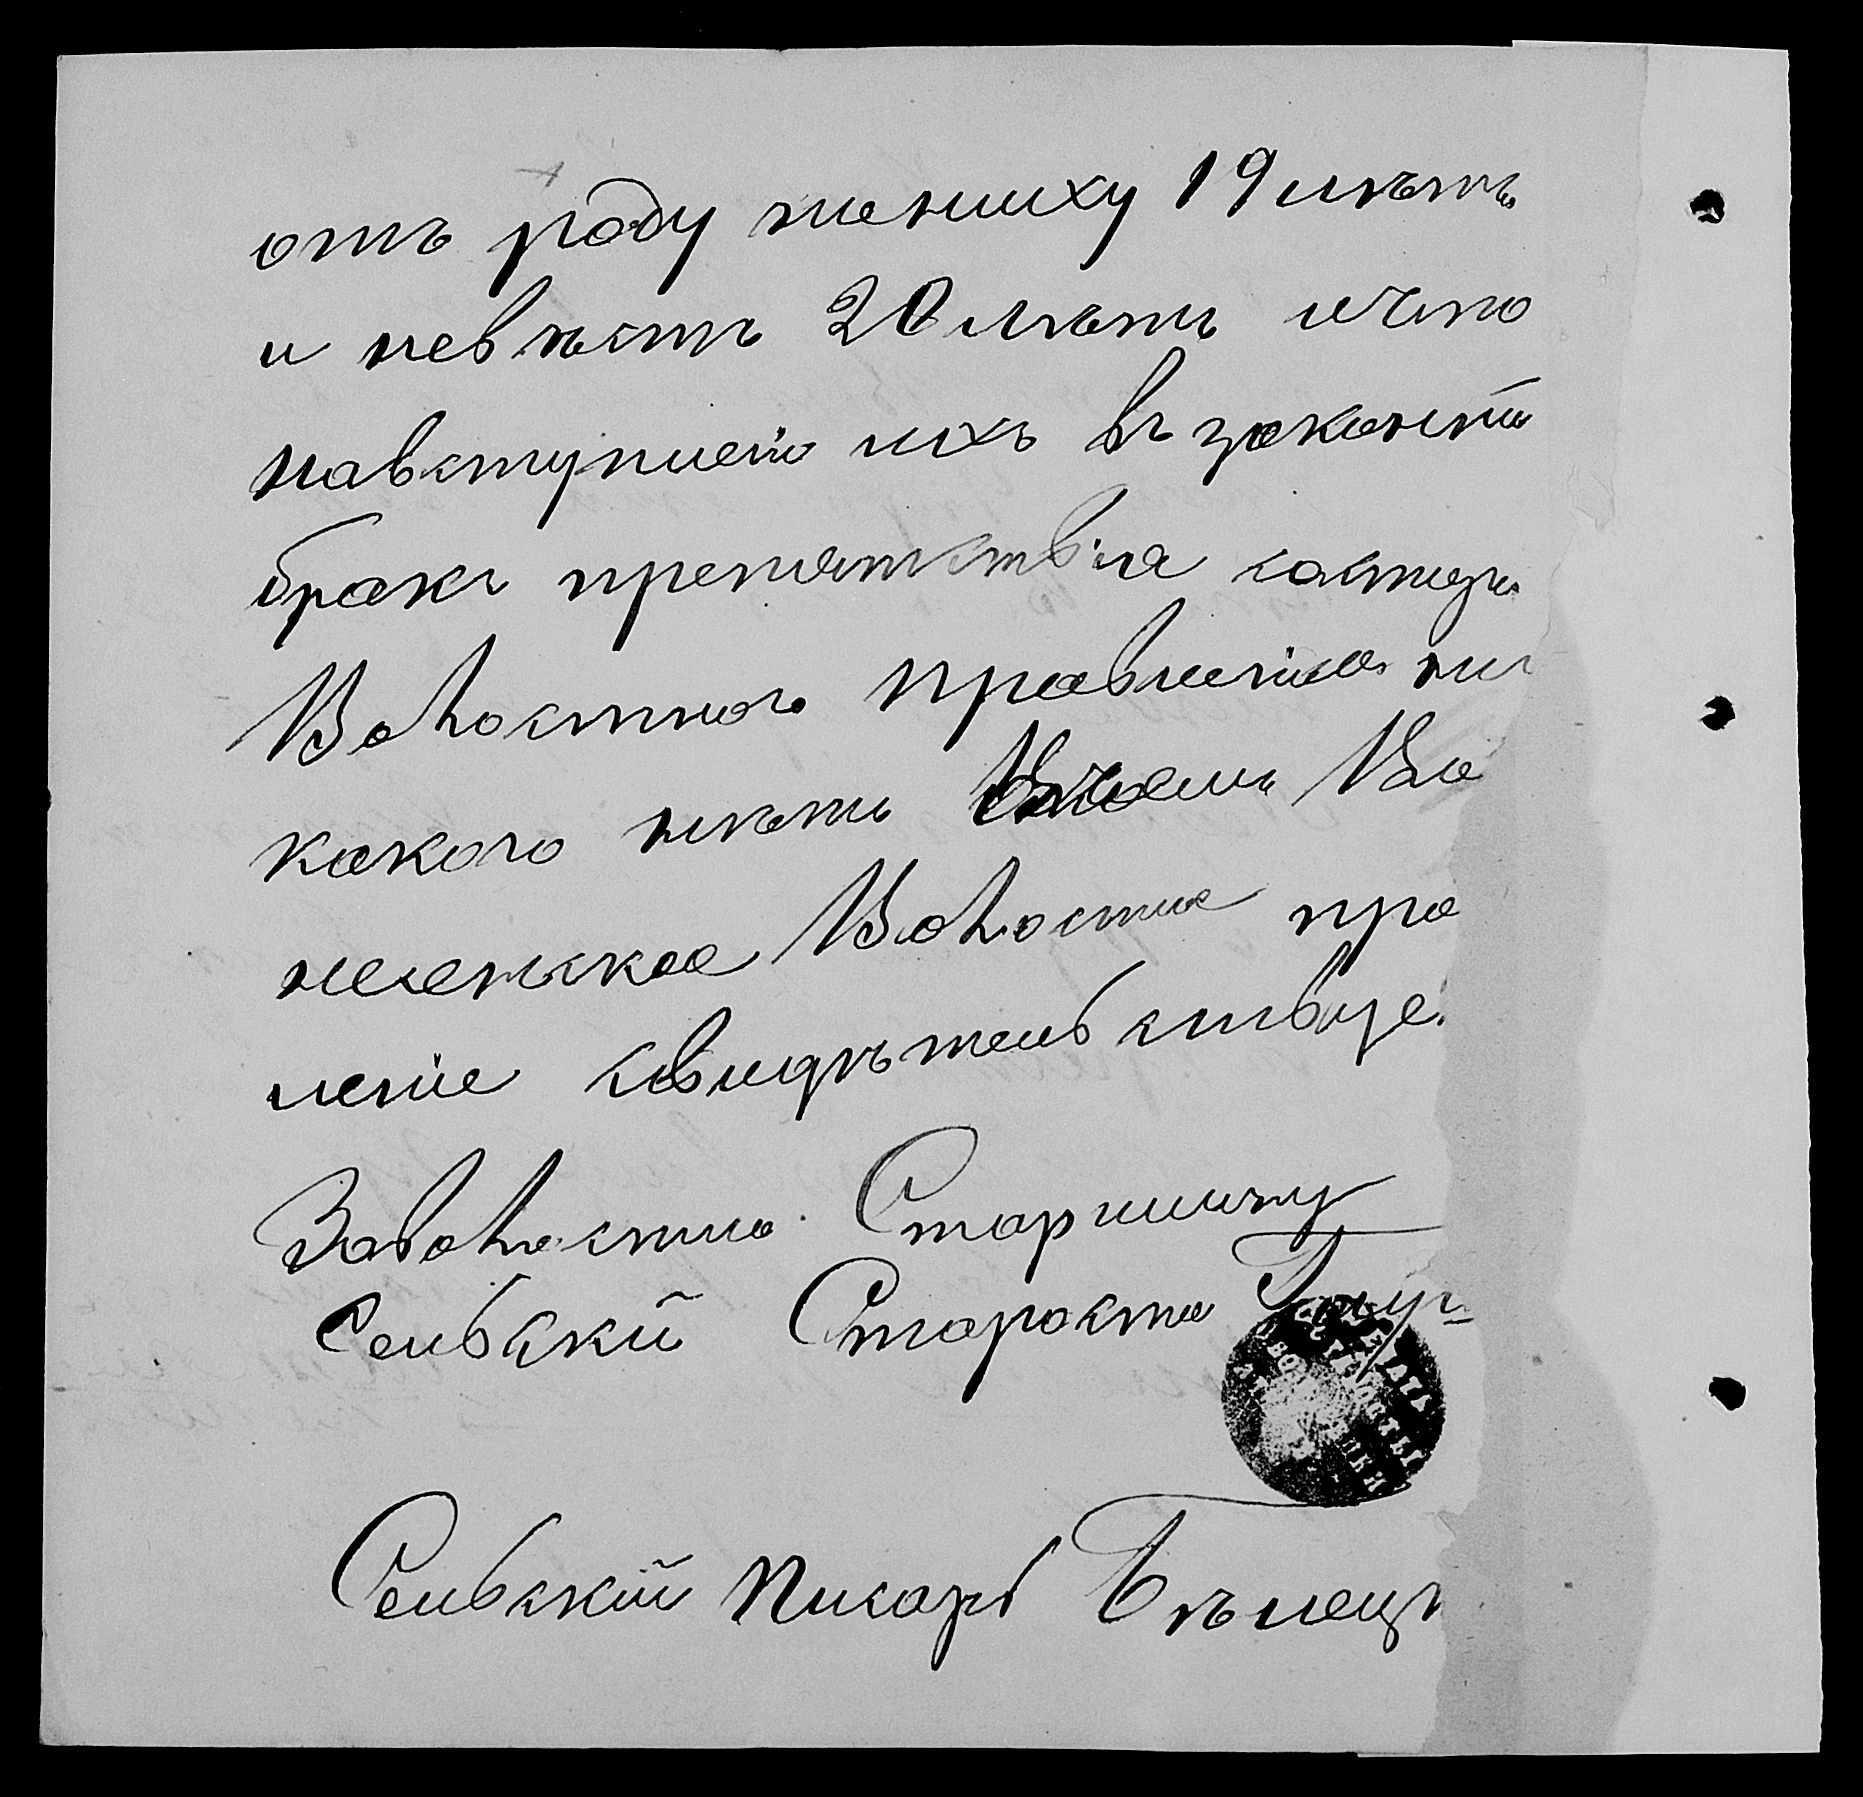 отъ роду жениху 19 лѣтъ
и невѣстѣ 20 лѣтъ ичто
навступленію ихъ въ законны
бракъ препятствія состоро
Волостного правленія ни
какого нѣтъ Ва
неленское Волостное пра
леніе свидѣтельствуе
Заволостно Старшину
Сельскій Староста
Сельскій Писарь Бѣлецк